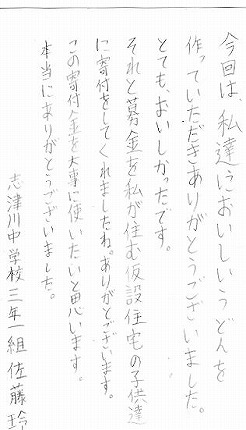 今回は、私達においしいうどんを
作っていただきありがとうございました。
とても、おいしかったです。
それと募金を私が住む仮設住宅の子供達
に寄付をしてくれましたね。ありがとございます。
この寄付金を大事に使いたいと思います。
本当にありがとうございました。
志津川中学校三年一組 佐藤玲